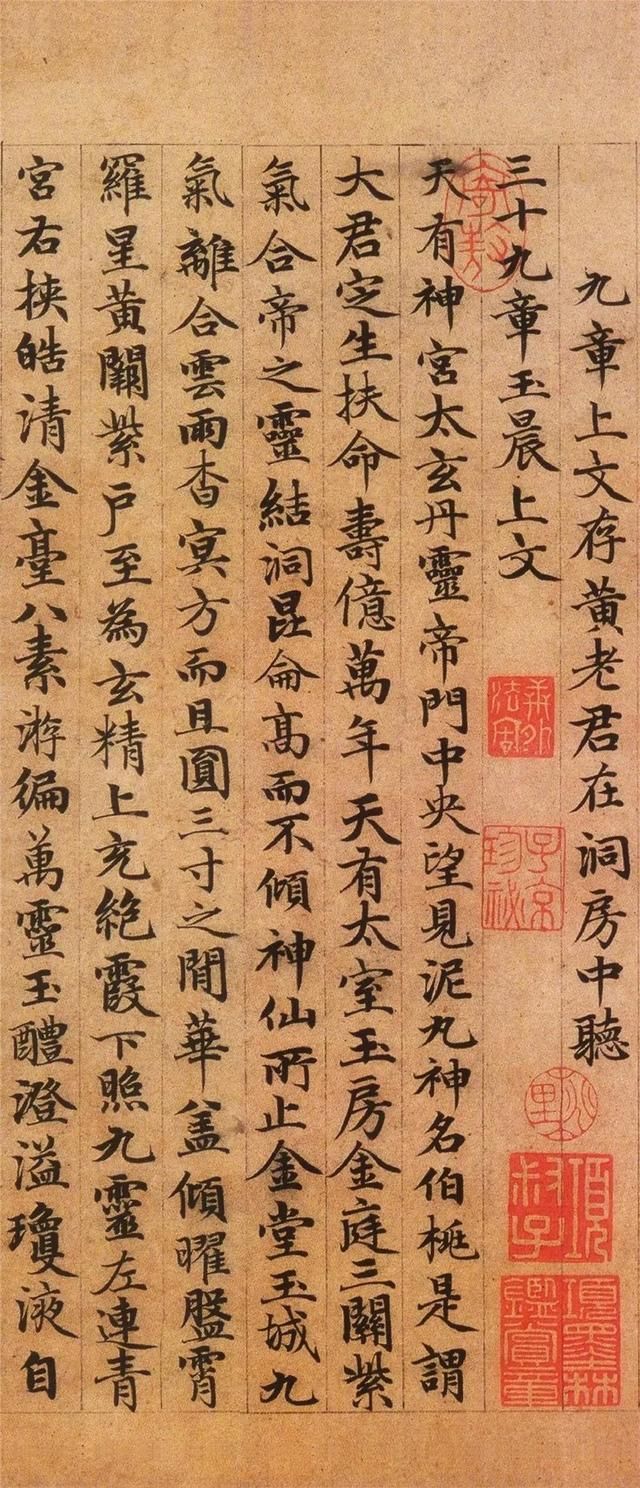 九章上文存黃老君在洞房中聽
三十九章玉晨上文
天有神宮太玄丹靈帝門中央望見泥丸神名伯桃是謂
大君定生扶命壽億萬年天有太室玉房金庭三關紫
氣合帝之靈結洞昆侖高而不傾神仙所止金堂玉城九
氣離合雲雨杳冥方而且圓三寸之間華盖傾曜盤霄
羅星黃闕紫戶至為玄精上充絕霞下照九靈左連青
宮右挾皓清金臺八素游徧萬靈玉醴澄溢瓊液自
子京珍祕
項叔子
項墨林鑑賞章